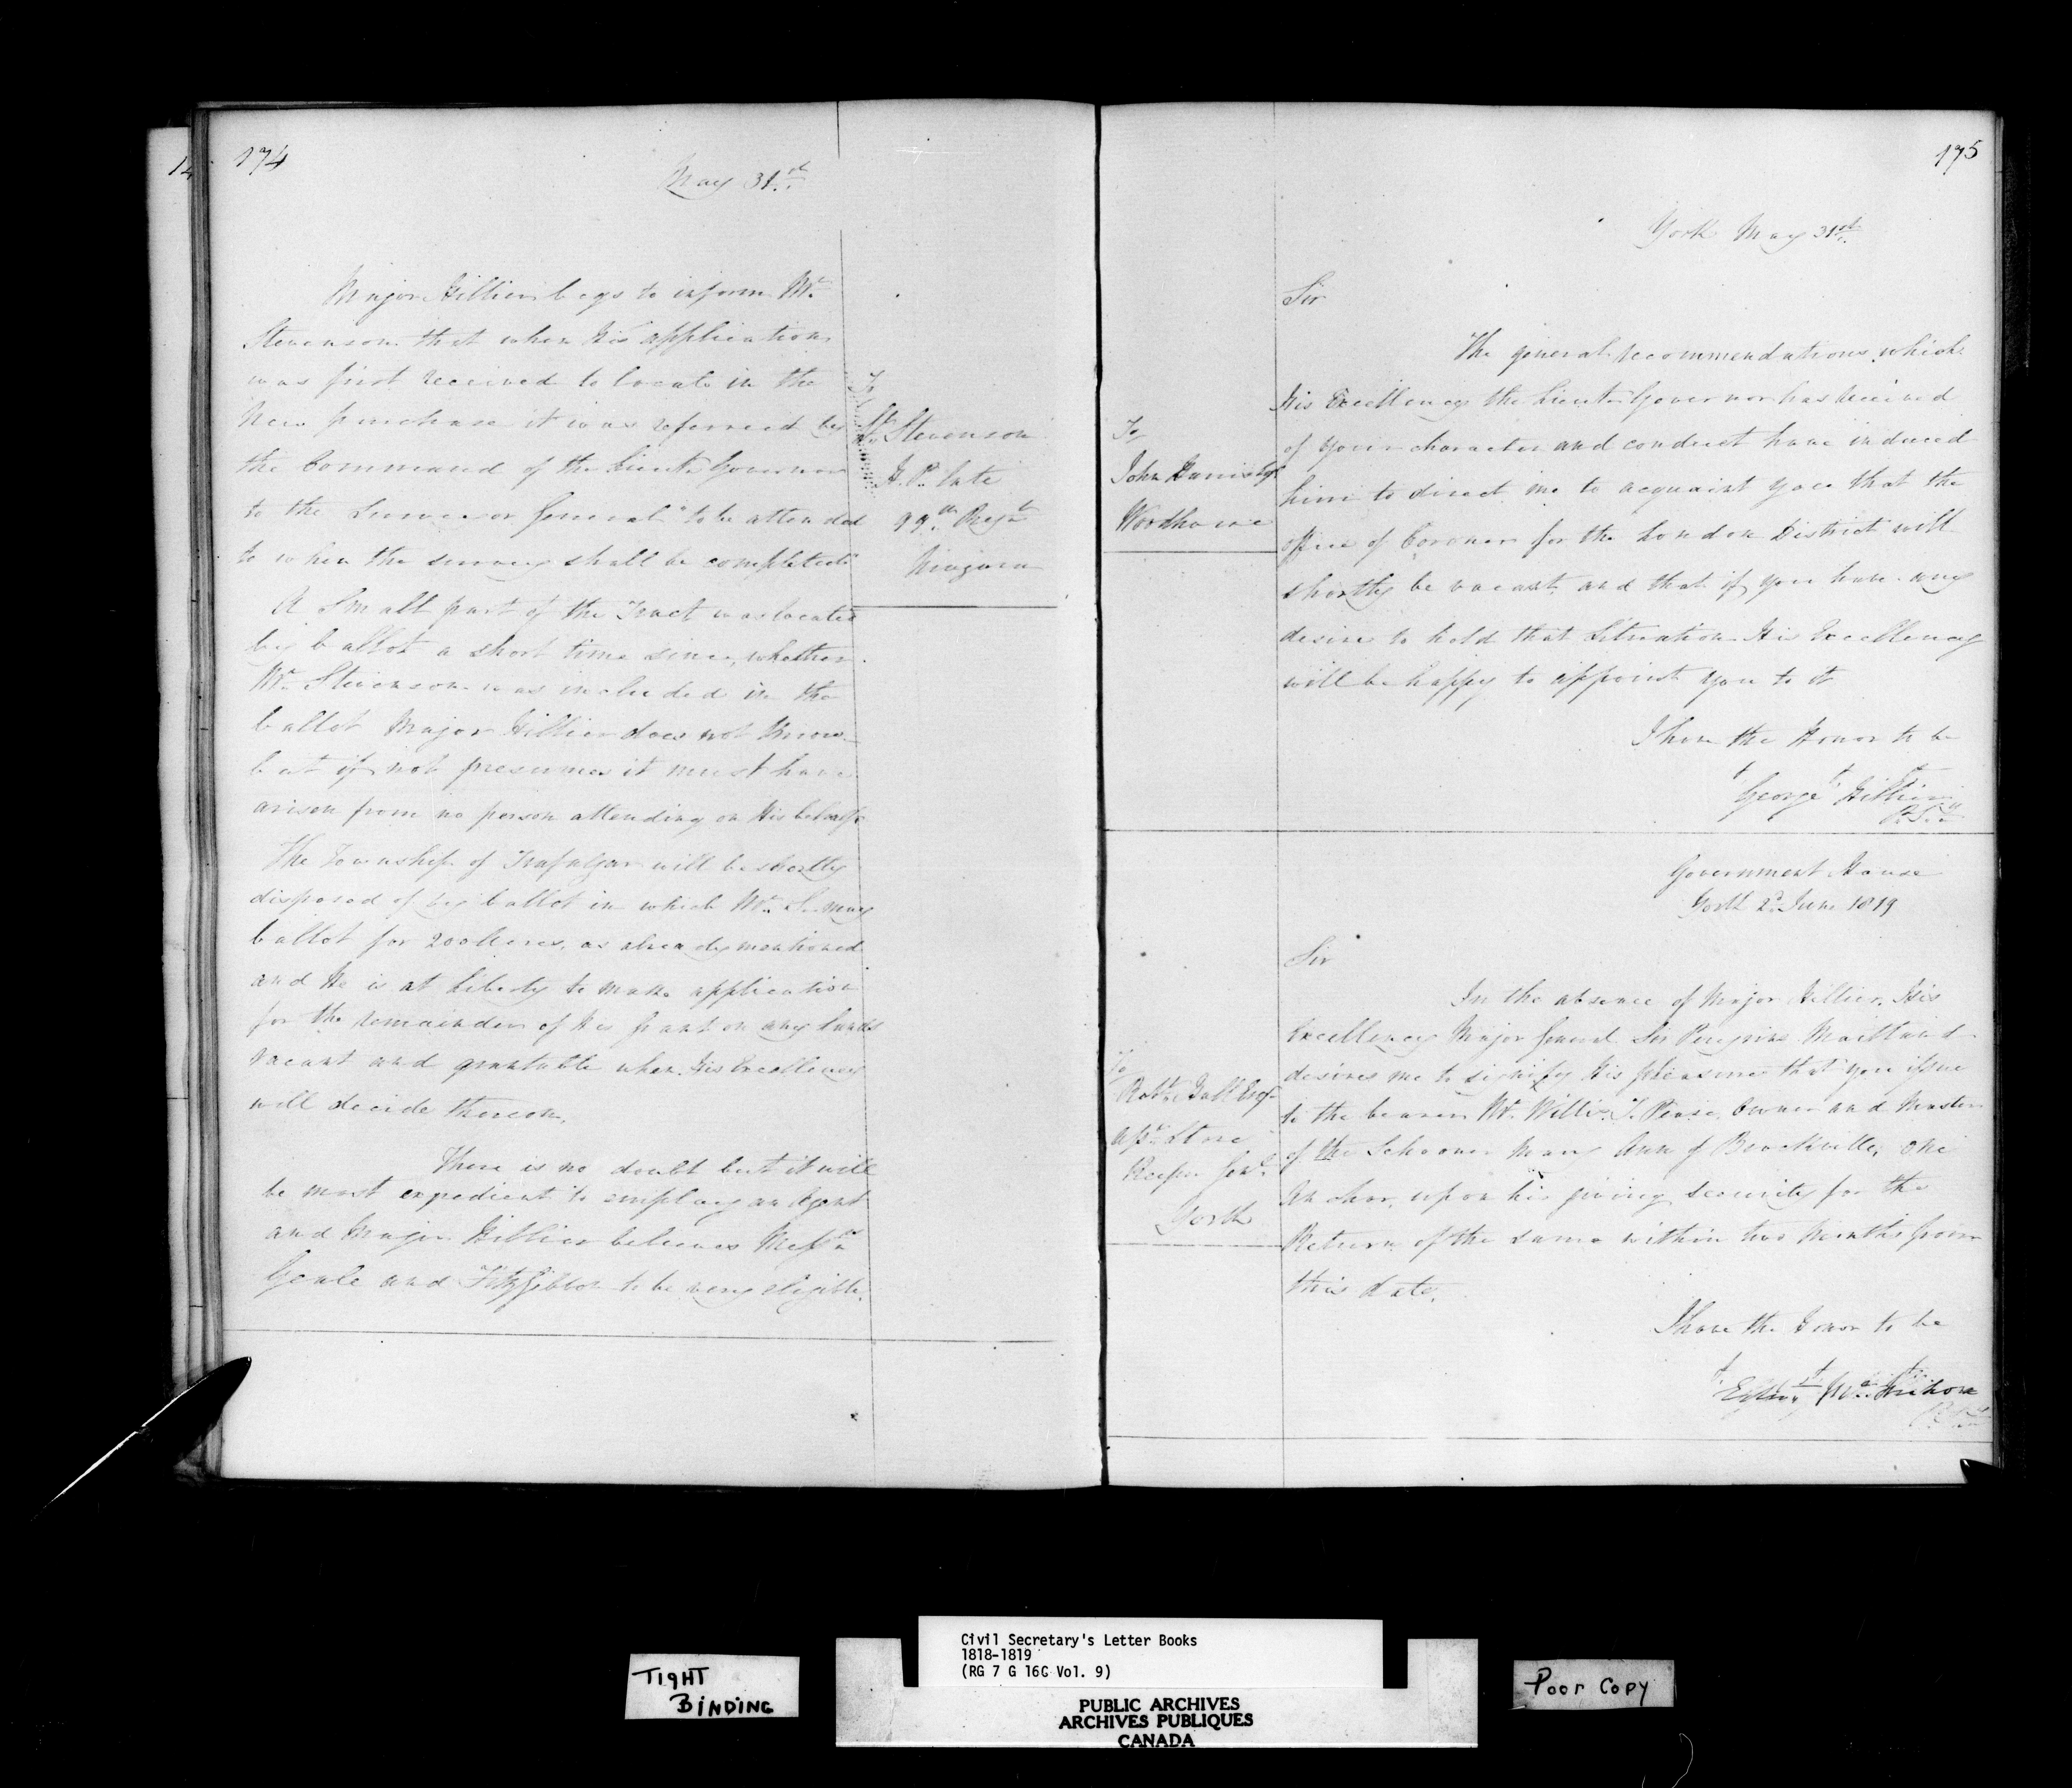 174
May 31st
Major Hillier begs to inform Mr.
Stevenson that when His application
was first received to locate in the
New purchase it was referred by
the Command of the Lieut. Governor
to the Surveyor General "to be attended
to when the survey shall be completed"
A Small part of the Tract was located
by ballot a short time since, whether
Mr. Stevenson was included in the
ballot Major Hillier does not Know
but if not presumes it must have
arisen from no person attending on His behalf.
The Township of Trafalgar will be shortly
disposed of by ballot in which Mr. S. may
ballot for 200 Acres, as already mentioned
and He is at Liberty to make application
for the remainder of His grant on any Lands
vacant and grantable when His Excellency
will decide thereon.
There is no doubt but it will
be most expedient to employ an Agent
and Major Hillier believes Messrs
Geale and FitzGibbon to be very eligible.
To
Lt. Stevenson
H. P. late
99th Regt
Niagara
175
York May 31st
Sir
The general recommendations which
His Excellency the Lieut. Governor has received
of your character and conduct have induced
him to direct me to acquaint you that the
office of Coroner for the London District will
shortly be vacant and that if you have any
desire to hold that Situation His Excellency
will be happy to appoint you to it
I have the Honor to be
George Hillier
P. Secy
To
John Harris Esqr
Woodhouse
Government House
York 2d June 1819
Sir
In the absence of Major Hillier, His
Excellency Major General Sir Peregrine Maitland
desires me to signify His pleasure that you issue
to the bearer Mr. Willis T. Pease, Owner and Master
of the Schooner Mary Ann of Brockville, one
Anchor, upon his giving security for the
Return of the same within two Months from
this date.
I have the Honor to be
Edwd McMahon
To
Robt Hall Esqr
Asst Store
Keeper Genl
York
TIGHT
BINDING
Civil Secretary's Letter Books
1818-1819
(RG 7 G 16C Vol. 9)
PUBLIC ARCHIVES
ARCHIVES PUBLIQUES
CANADA
Poor Copy